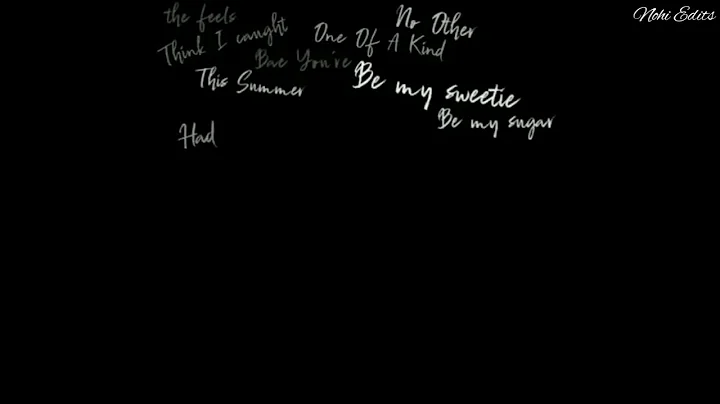 Nohi Edits
the feels
Think I caught
One Of A Kind
No Other
Bae You're
This Summer
Be my sweetie
Be my sugar
Had